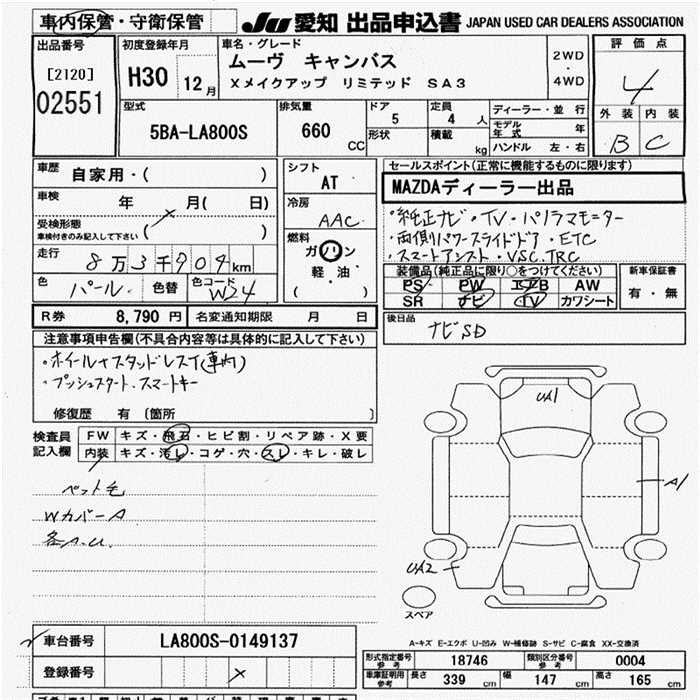 車内保管・守衛保管 JU 愛知 出品申込書 JAPAN USED CAR DEALERS ASSOCIATION
出品番号
[2120]
02551
初度登録年月
H30 12月
車名・グレード
ムーヴ キャンバス
Xメイクアップ リミテッド SA3
2WD
・
4WD
評価点
4
外装 内装
B C
型式
5BA-LA800S
排気量
660 CC
ドア
5
形状
定員
4 人
積載
kg
ディーラー・並行
モデル年式 年
ハンドル 左・右
車歴
自家用・( )
車検
年 月( 日)
受検形態
車検付きのみ記入して下さい ( )
走行
8万3千909km
色
パール
色替
色コード
W24
シフト
AT
冷房
AAC
燃料
ガソリン
軽・油
( )
セールスポイント(正常に機能するものに限ります)
MAZDAディーラー出品
・純正ナビ・TV・パノラマモニター
・両側パワースライドドア・ETC
・スマートアシスト・VSC.TRC
装備品(純正品に限り○をつけてください)
PS PW エアB AW
SR ナビ TV カワシート
新車保証書
有・無
R券 8,790 円 名変通知期限 月 日
後日品
ナビSD
注意事項申告欄(不具合内容等は具体的に記入して下さい)
・ホイール+スタッドレスT(車内)
・プッシュスタート.スマートキー
修復歴 有 〔箇所 〕
検査員
記入欄
FW キズ・飛石・ヒビ割・リペア跡・X要
内装 キズ・汚レ・コゲ・穴・スレ・キレ・破レ
ペット毛
WカバーA
各A.U.
UA1
A1
UA2
スペア
A-キズ E-エクボ U-凹み W-補修跡 S-サビ C-腐食 XX-交換済
車台番号 LA800S-0149137
登録番号
形式指定番号
参考
18746
類別区分番号
参考
0004
車庫証明用
参考
長さ 339 cm 幅 147 cm 高さ 165 cm